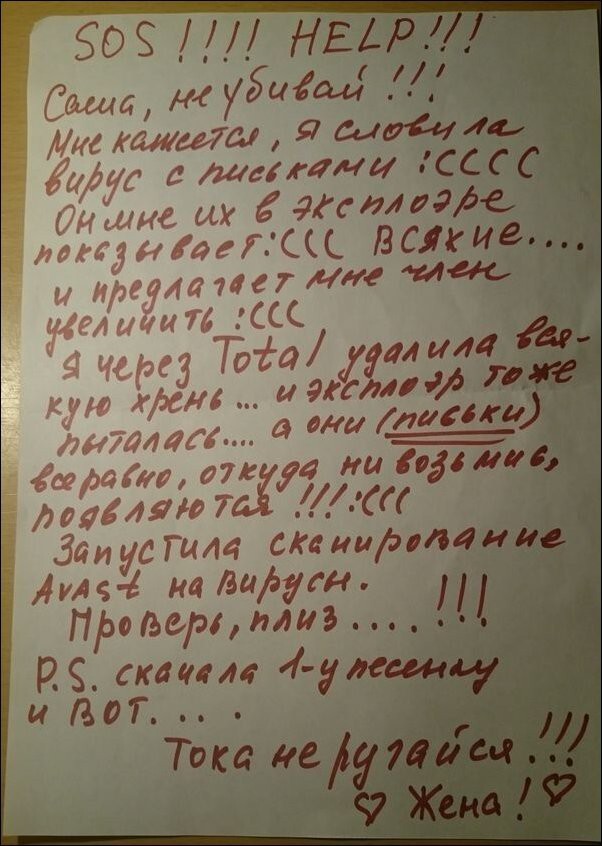 SOS !!!! HELP!!!
Саша, не убивай !!!
Мне кажется, я словила
вирус с письками :СССС
Он мне их в эксплоэре
показывает:ССС ВСЯКИЕ....
и предлагает мне член
увеличить :ССС
Я через Total удалила вся-
кую хрень... и эксплоэр тоже
пыталась.... а они (письки)
всеравно, откуда ни возьмись,
появляются !!!:ССС
Запустила сканирование
Avast на вирусы.
Проверь, плиз.... !!!
P.S. скачала 1-у песенку
и ВОТ....
Тока не ругайся !!!
♡ Жена! ♡